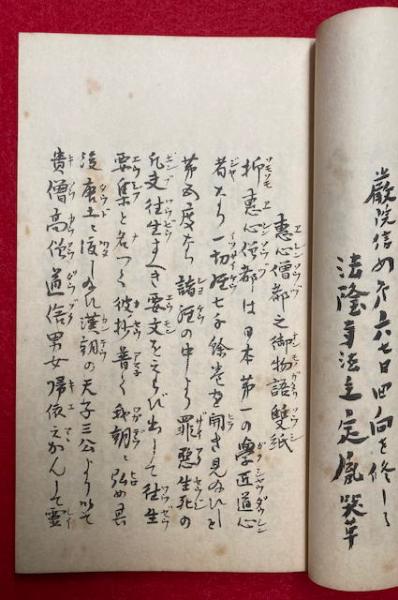 厳院信め不六七日回向を修しる
法隆寺法主定胤哭草
恵心僧都之御物語雙紙
抑恵心僧都は日本第一の學匠道心
者なり一切経七千餘巻を開き見ゐひしを
第五度なり諸経の中より罪惡生死の
凡夫往生すへき要文をえらび出して往生
要集と名つく彼抄普く我朝に弘め其
後唐土に渡しゐひ漢朝の天子三公より始て
貴僧高僧道俗男女帰依せかんして霊